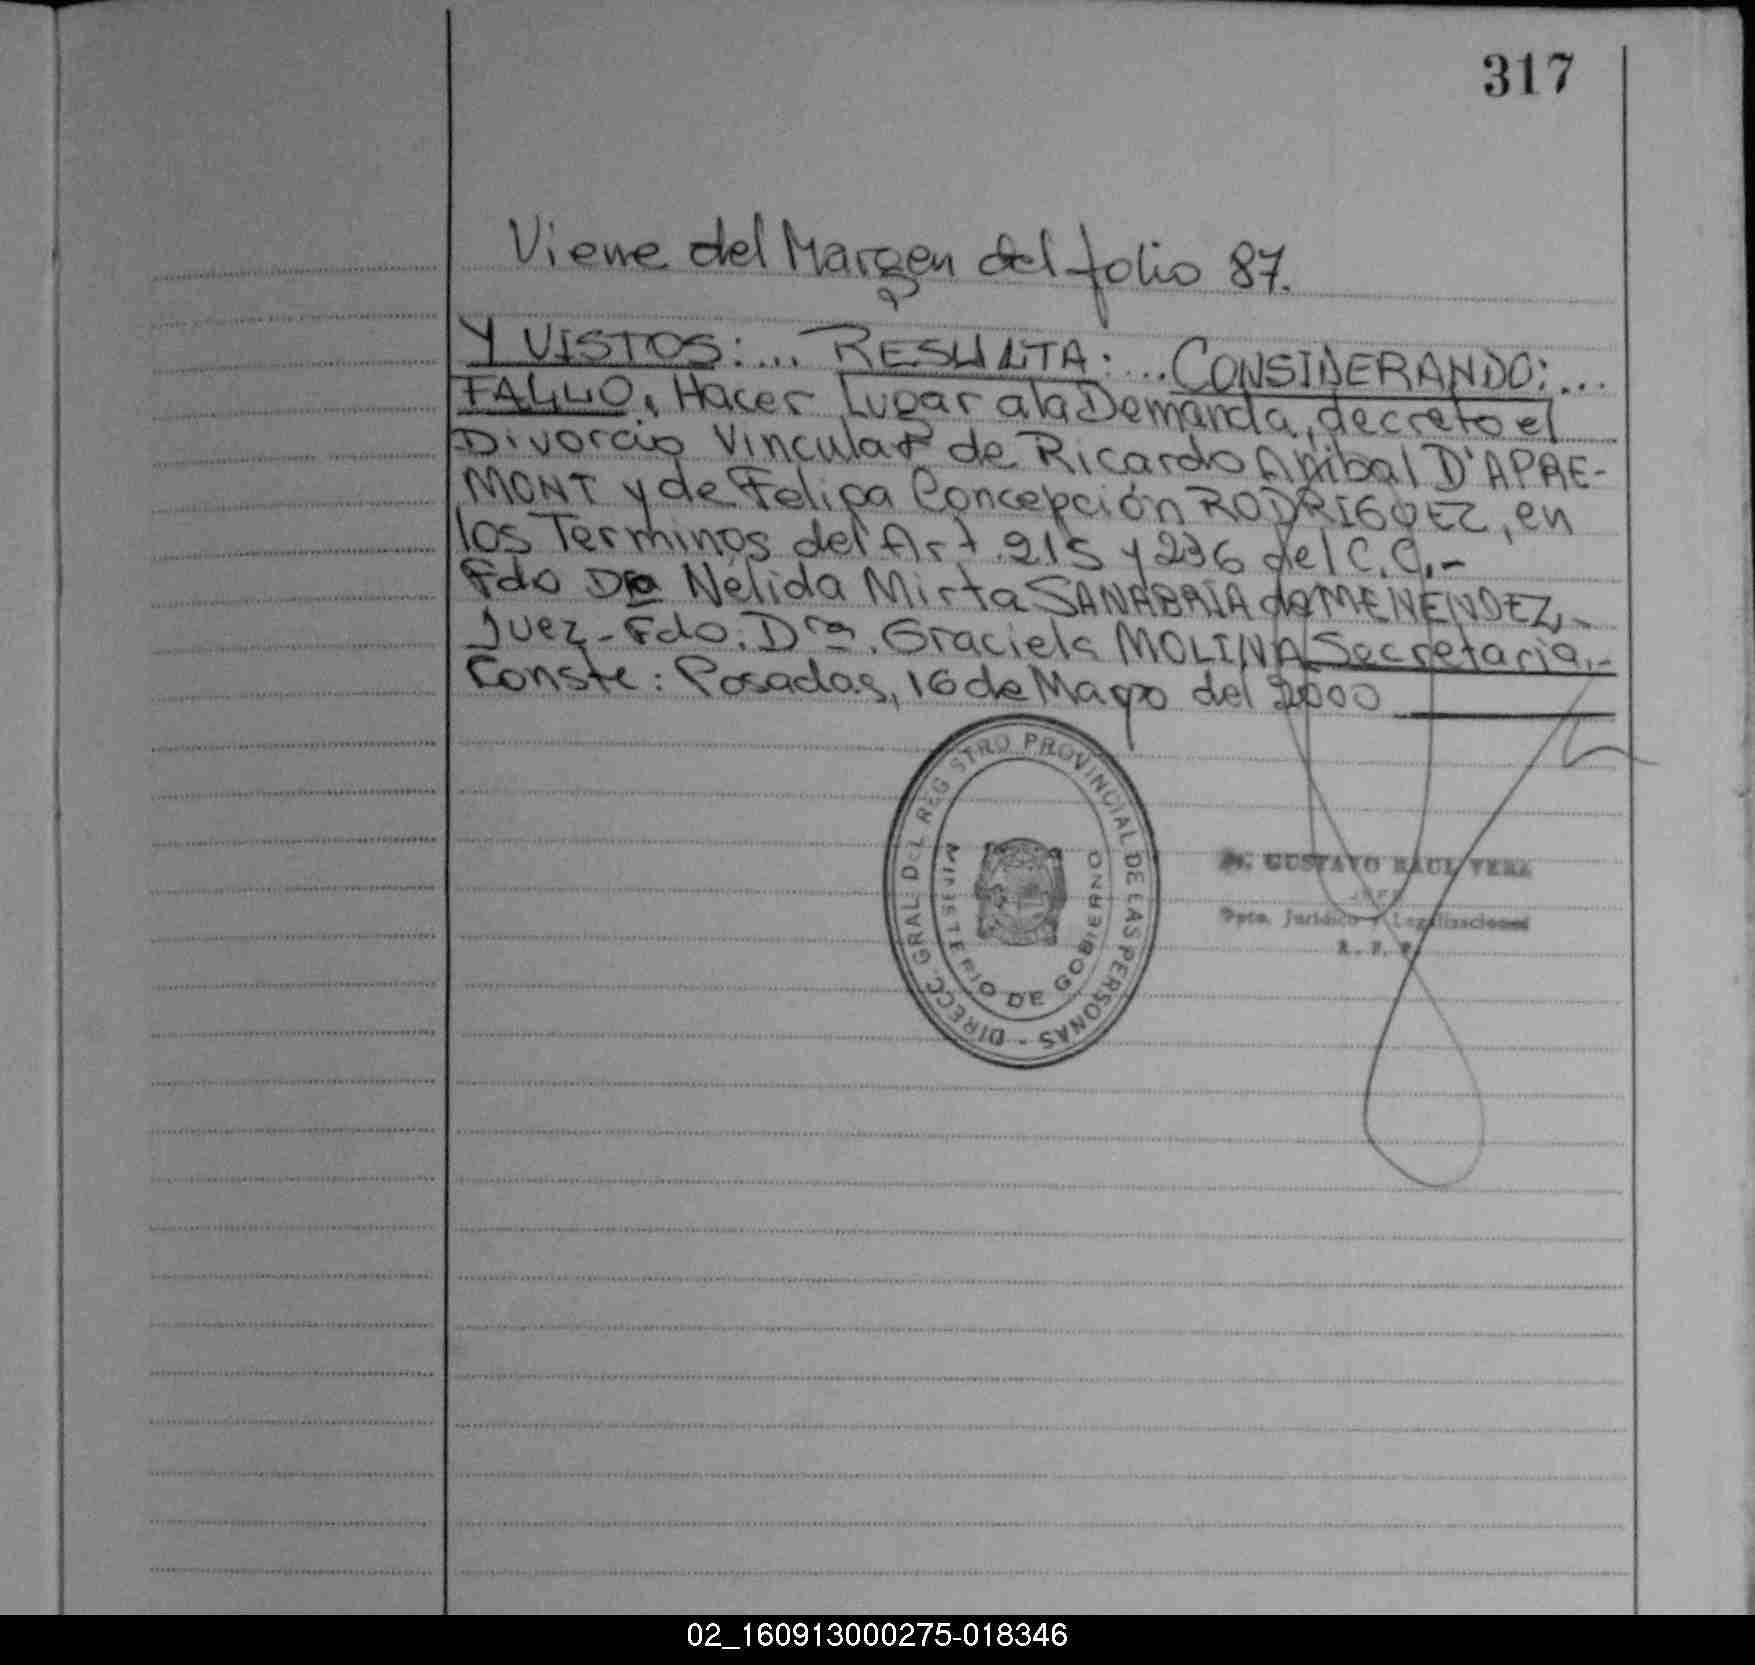 317
Viene del Margen del folio 87.
Y VISTOS:... RESULTA: ... CONSIDERANDO:...
FALLO, Hacer Lugar a la Demanda, decreto el
Divorcio Vincular de Ricardo Anibal D'APRE-
MONT y de Felipa Concepción RODRIGUEZ, en
los Terminos del Art. 215 y 236 del C.C.-
Fdo Dra Nélida Mirta SANABRIA de MENENDEZ,-
Juez-Fdo. Dra. Graciela MOLINA Secretaria.-
Conste: Posadas, 16 de Mayo del 2000
DIRECC. GRAL. DEL REGISTRO PROVINCIAL DE LAS PERSONAS -
MINISTERIO DE GOBIERNO
Dr. GUSTAVO RAUL VERA
JEFE
Dpto. Jurídico y Legalizaciones
R. P. P.
02_160913000275-018346